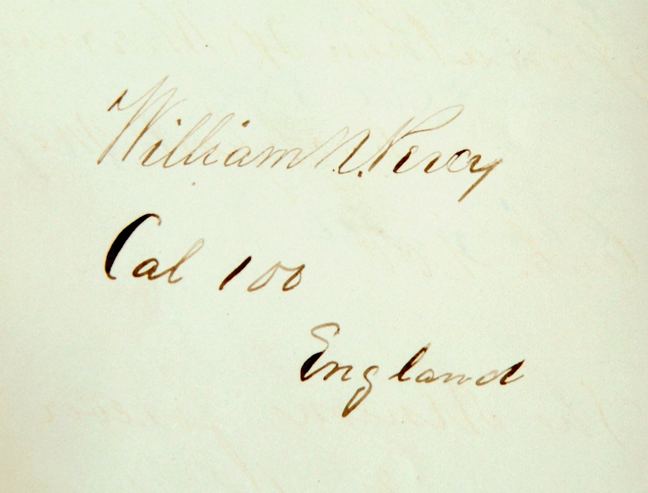 William N. Percy
Cal 100
England